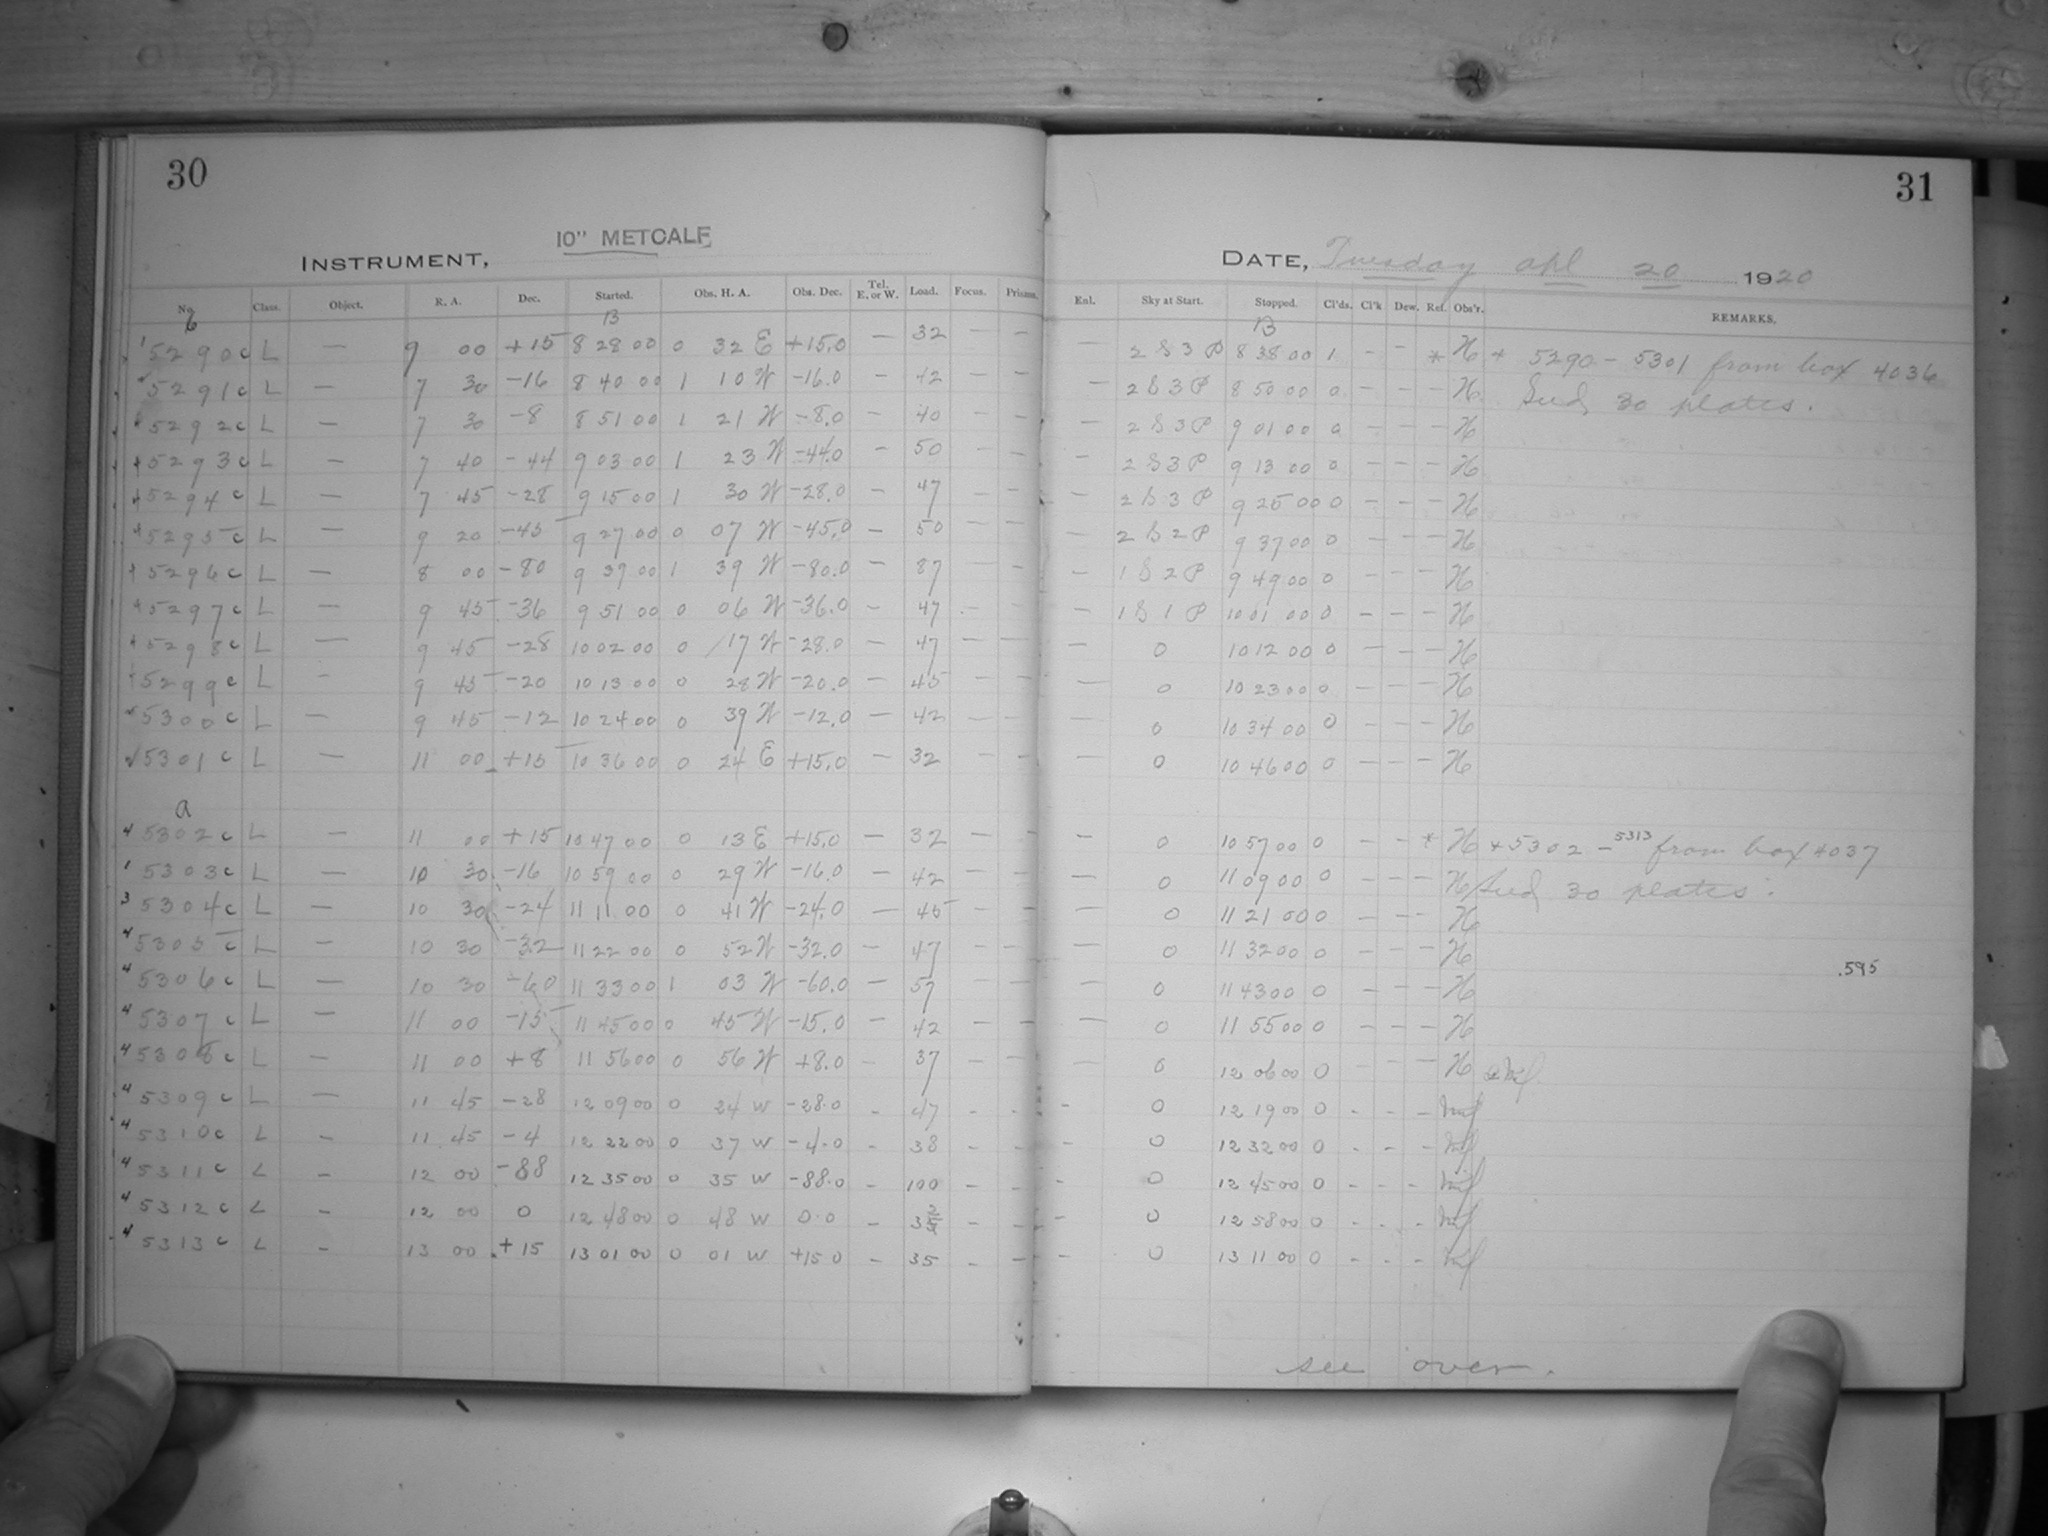 30
10" METCALF
INSTRUMENT,
No. Class. Object. R. A. Dec. Started. Obs. H. A. Obs. Dec. Tel. E. or W. Load. Focus. Prisms.
b B
5290c L — 9 00 +15 8 28 00 0 32 E +15.0 — 32 — —
5291c L — 7 30 -16 8 40 00 1 10 W -16.0 — 42 — —
5292c L — 7 30 -8 8 51 00 1 21 W -8.0 — 40 — —
5293c L — 7 40 -44 9 03 00 1 23 W -44.0 — 50 — —
5294c L — 7 45 -28 9 15 00 1 30 W -28.0 — 47 — —
5295c L — 9 20 -45 9 27 00 0 07 W -45.0 — 50 — —
5296c L — 8 00 -80 9 39 00 1 39 W -80.0 — 87 — —
5297c L — 9 45 -36 9 51 00 0 06 W -36.0 — 47 — —
5298c L — 9 45 -28 10 02 00 0 17 W -28.0 — 47 — —
5299c L — 9 45 -20 10 13 00 0 28 W -20.0 — 45 — —
5300c L — 9 45 -12 10 24 00 0 39 W -12.0 — 42 — —
5301c L — 11 00 +15 10 36 00 0 24 E +15.0 — 32 — —
a
5302c L — 11 00 +15 10 47 00 0 13 E +15.0 — 32 — —
5303c L — 10 30 -16 10 59 00 0 29 W -16.0 — 42 — —
5304c L — 10 30 -24 11 11 00 0 41 W -24.0 — 45 — —
5305c L — 10 30 -32 11 22 00 0 52 W -32.0 — 47 — —
5306c L — 10 30 -60 11 33 00 1 03 W -60.0 — 57 — —
5307c L — 11 00 -15 11 45 00 0 45 W -15.0 — 42 — —
5308c L — 11 00 +8 11 56 00 0 56 W +8.0 — 37 — —
5309c L — 11 45 -28 12 09 00 0 24 W -28.0 - 47 - -
5310c L — 11 45 -4 12 22 00 0 37 W -4.0 - 38 - -
5311c L - 12 00 -88 12 35 00 0 35 W -88.0 - 100 - -
5312c L - 12 00 0 12 48 00 0 48 W 0.0 - - -
5313c L - 13 00 +15 13 01 00 0 01 W +15 0 - 35 - -
31
DATE, Tuesday apl 20 1920
Enl. Sky at Start. Stopped. Cl'ds. Cl'k Dew. Ref. Obs'r. REMARKS.
B
— 2 S 3 P 8 38 00 1 - - * H * 5290 - 5301 from box 4036
— 2 S 3 P 8 50 00 0 - - - H Seed 30 plates.
— 2 S 3 P 9 01 00 0 - - - H
— 2 S 3 P 9 13 00 0 - - - H
— 2 S 3 P 9 25 00 0 - - - H
— 2 S 2 P 9 37 00 0 - - - H
— 1 S 2 P 9 49 00 0 - - - H
— 1 S 1 P 10 01 00 0 - - - H
— 0 10 12 00 0 - - - H
— 0 10 23 00 0 - - - H
— 0 10 34 00 0 - - - H
— 0 10 46 00 0 - - - H
— 0 10 57 00 0 - - * H * 5302 - 5313 from box 4037
— 0 11 09 00 0 - - - H Seed 30 plates.
— 0 11 21 00 0 - - - H
— 0 11 32 00 0 - - - H
.595
— 0 11 43 00 0 - - - H
— 0 11 55 00 0 - - - H
— 0 12 06 00 0 - - H
- 0 12 19 00 0 - - -
- 0 12 32 00 0 - - -
- 0 12 45 00 0 - - -
- 0 12 58 00 0 - - -
- 0 13 11 00 0 - - -
see over.